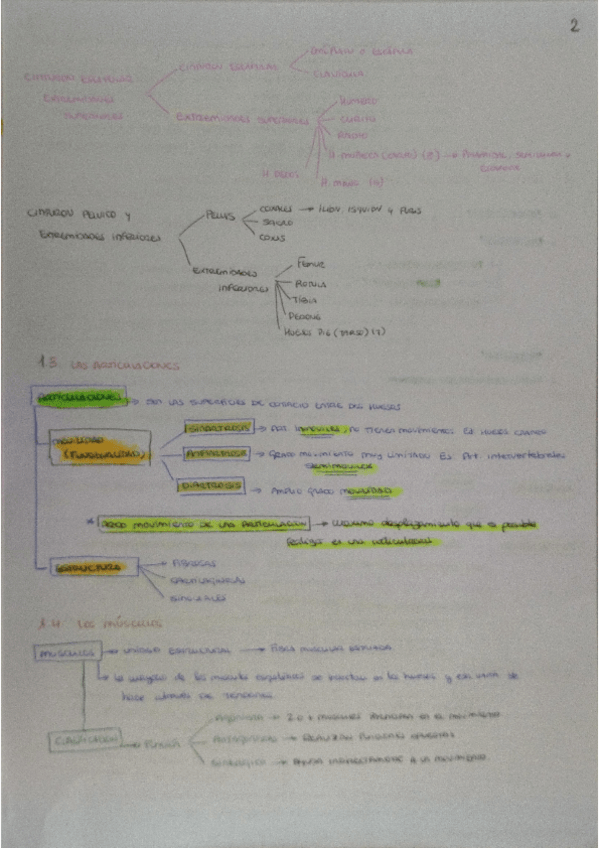 2
CINTURÓN ESCAPULAR
EXTREMIDADES
SUPERIORES
CINTURÓN ESCAPULAR
CLAVÍCULA
EXTREMIDADES SUPERIORES
HÚMERO
CÚBITO
RADIO
H. MUÑECA (CARPO) (8) → PIRAMIDAL, SEMILUNAR
H. DEDOS
H. MANO
CINTURÓN PÉLVICO Y
EXTREMIDADES INFERIORES
PELVIS
COXALES → ÍLION, ISQUION Y PUBIS
SACRO
COXIS
EXTREMIDADES
INFERIORES
FEMUR
RÓTULA
TIBIA
PERONÉ
HUESOS PIE (TARSO) (7)
1.3 LAS ARTICULACIONES
ARTICULACIONES → SON LAS SUPERFICIES DE CONTACTO ENTRE DOS HUESOS
MOVILIDAD
(FUNCIONALIDAD)
SINARTROSIS → INMÓVILES, NO TIENEN MOVIMIENTOS EJ. HUESOS CRÁNEO
ANFIARTROSIS → GRADO MOVIMIENTO MUY LIMITADO EJ. Art. intervertebrales
SEMIMÓVILES
DIARTROSIS → AMPLIO GRADO MOVILIDAD
* ARCO MOVIMIENTO DE UNA ARTICULACIÓN → desplazamiento que es posible
realizar en una articulación
ESTRUCTURA
FIBROSAS
CARTILAGINOSAS
SINOVIALES
1.4 LOS MÚSCULOS
MÚSCULOS → UNIDAD ESTRUCTURAL → FIBRA MUSCULAR ESTRIADA
→ La de los músculos esqueléticos se en los huesos y esa unión se
hace a través de TENDONES
CLASIFICACIÓN → FUNCIÓN
AGONISTA → 2 o + MÚSCULOS TRABAJAN EN EL MOVIMIENTO
ANTAGONISTAS → REALIZAN FUNCIONES OPUESTAS
SINERGICO → AYUDA INDIRECTAMENTE A LA MOVIMIENTO.